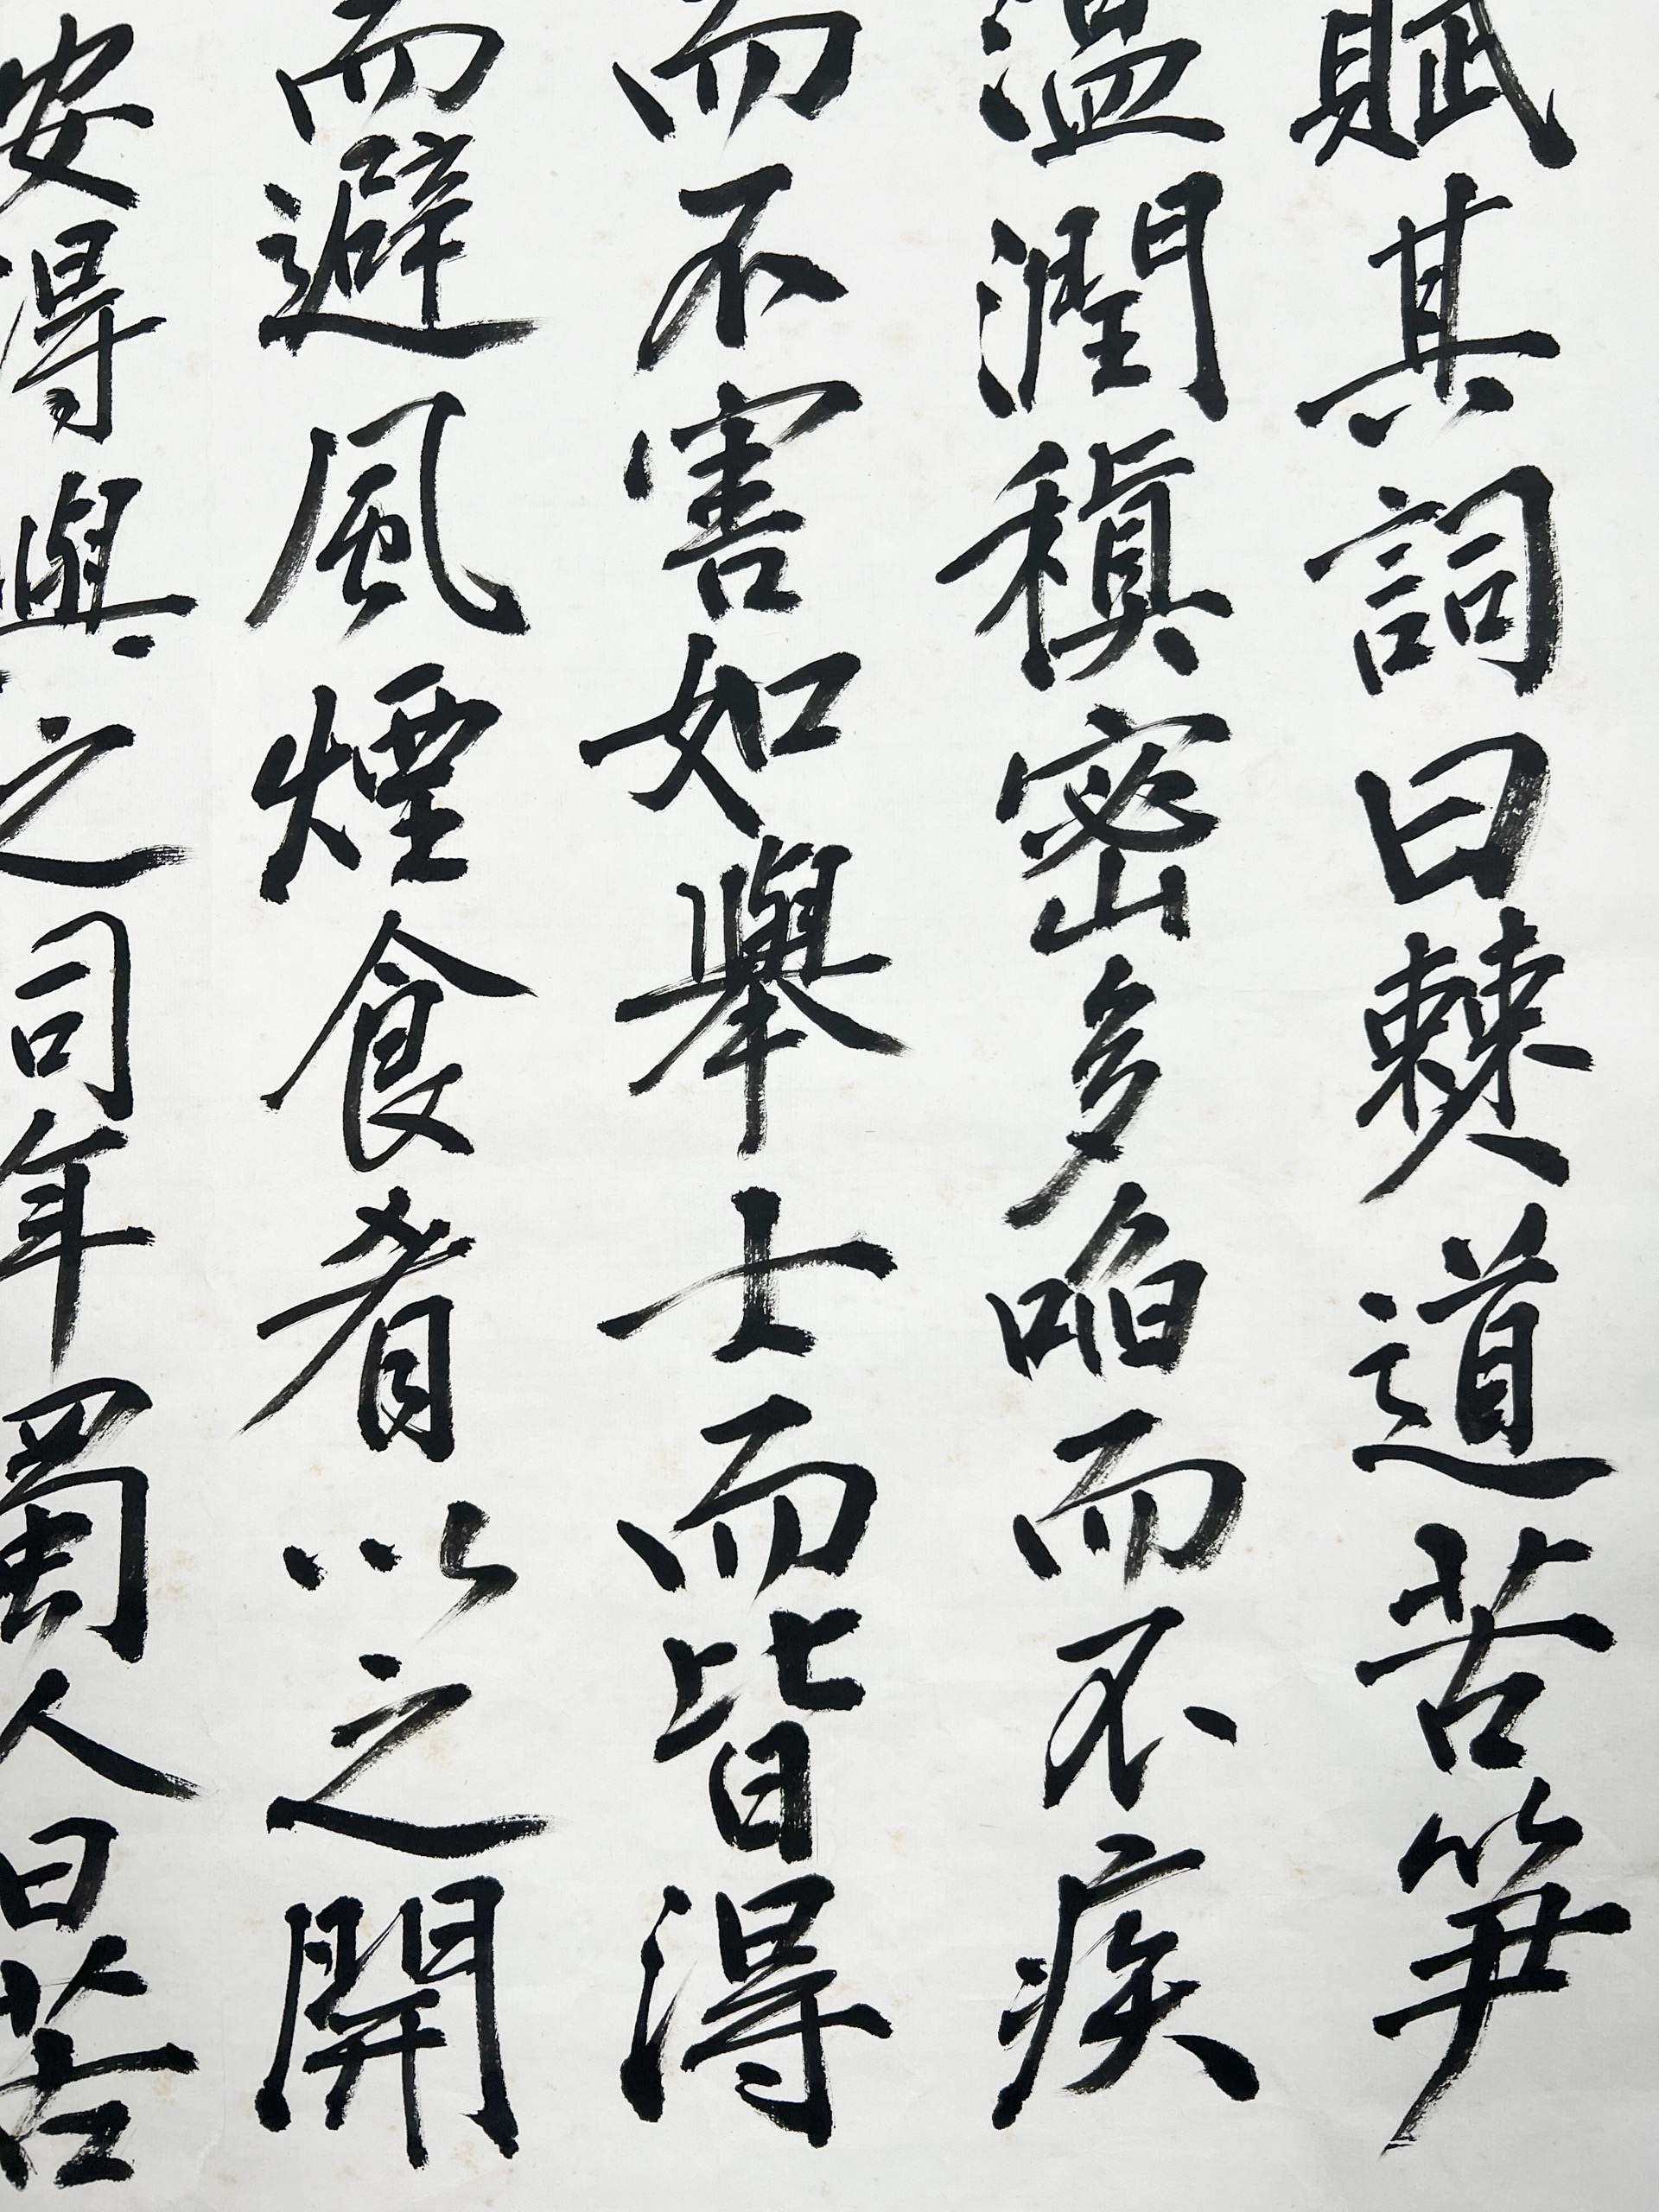 賦其詞曰僰道苦笋
温潤稹密多啗而不疾
而不害如舉士而皆得
而避風煙食肴以之開
安得與之同年蜀人曰苦